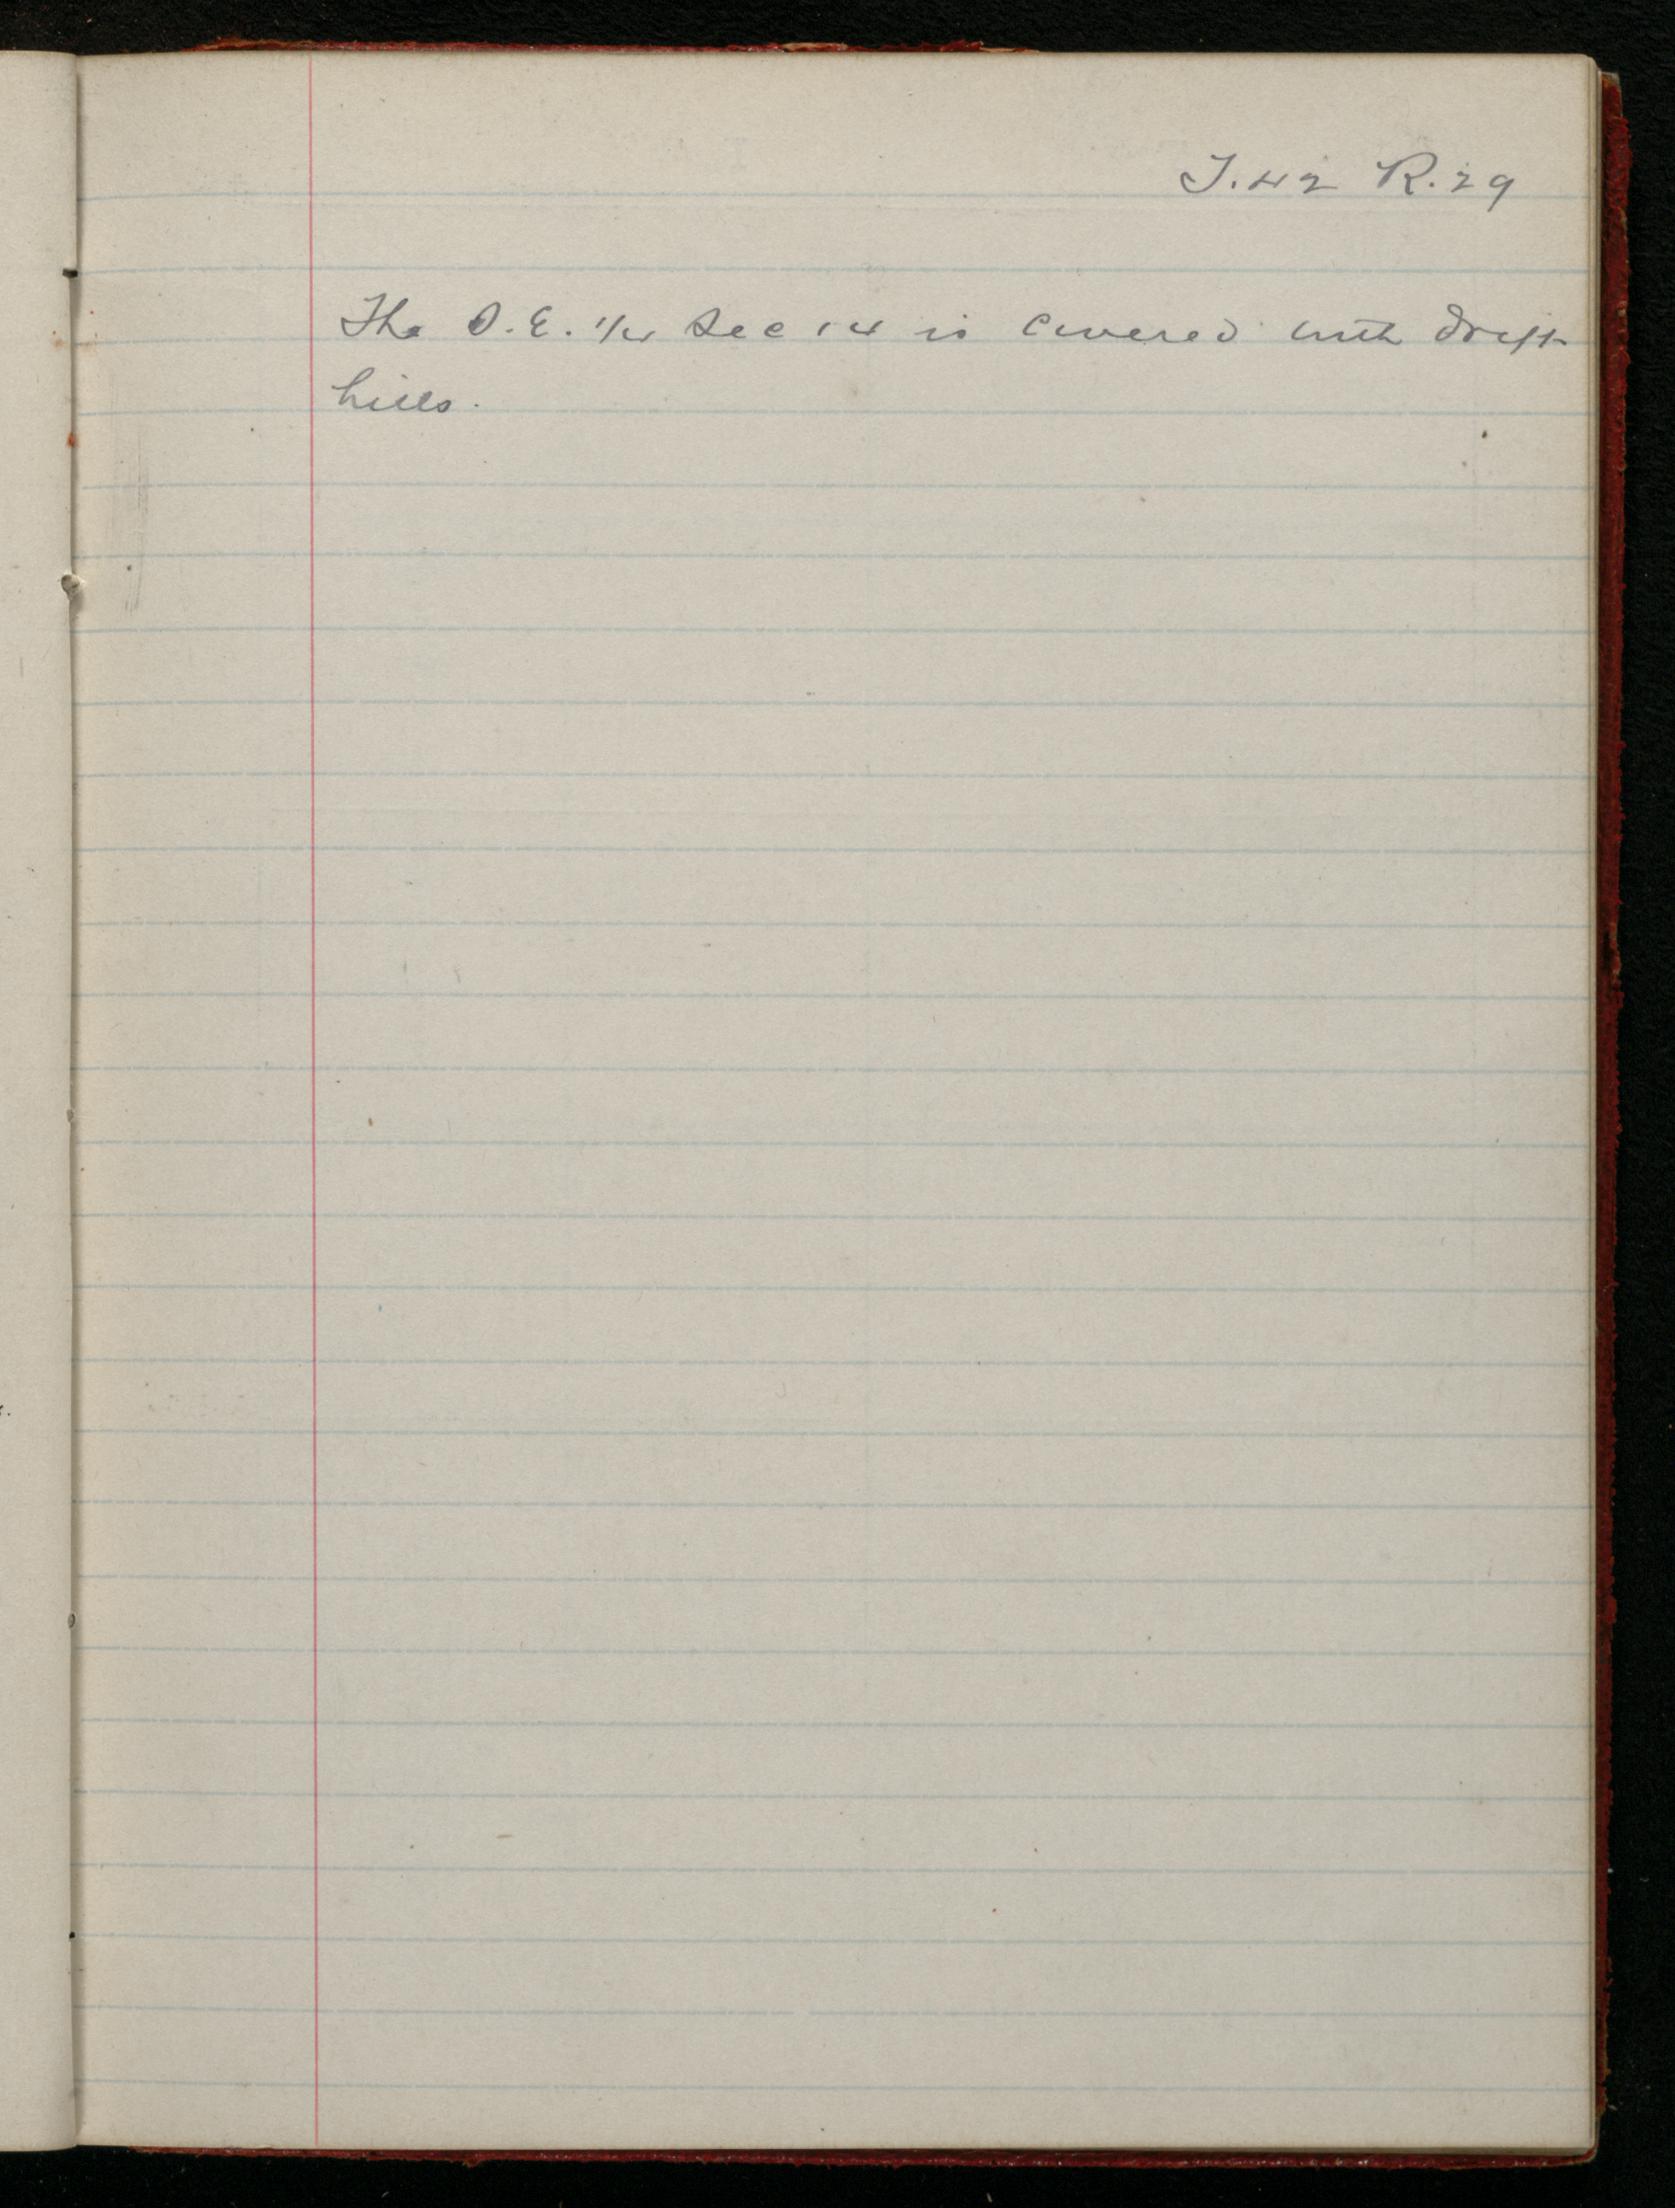 T.42 R.29
The S.E. 1/4 Sec 14 is covered with drift
hills.